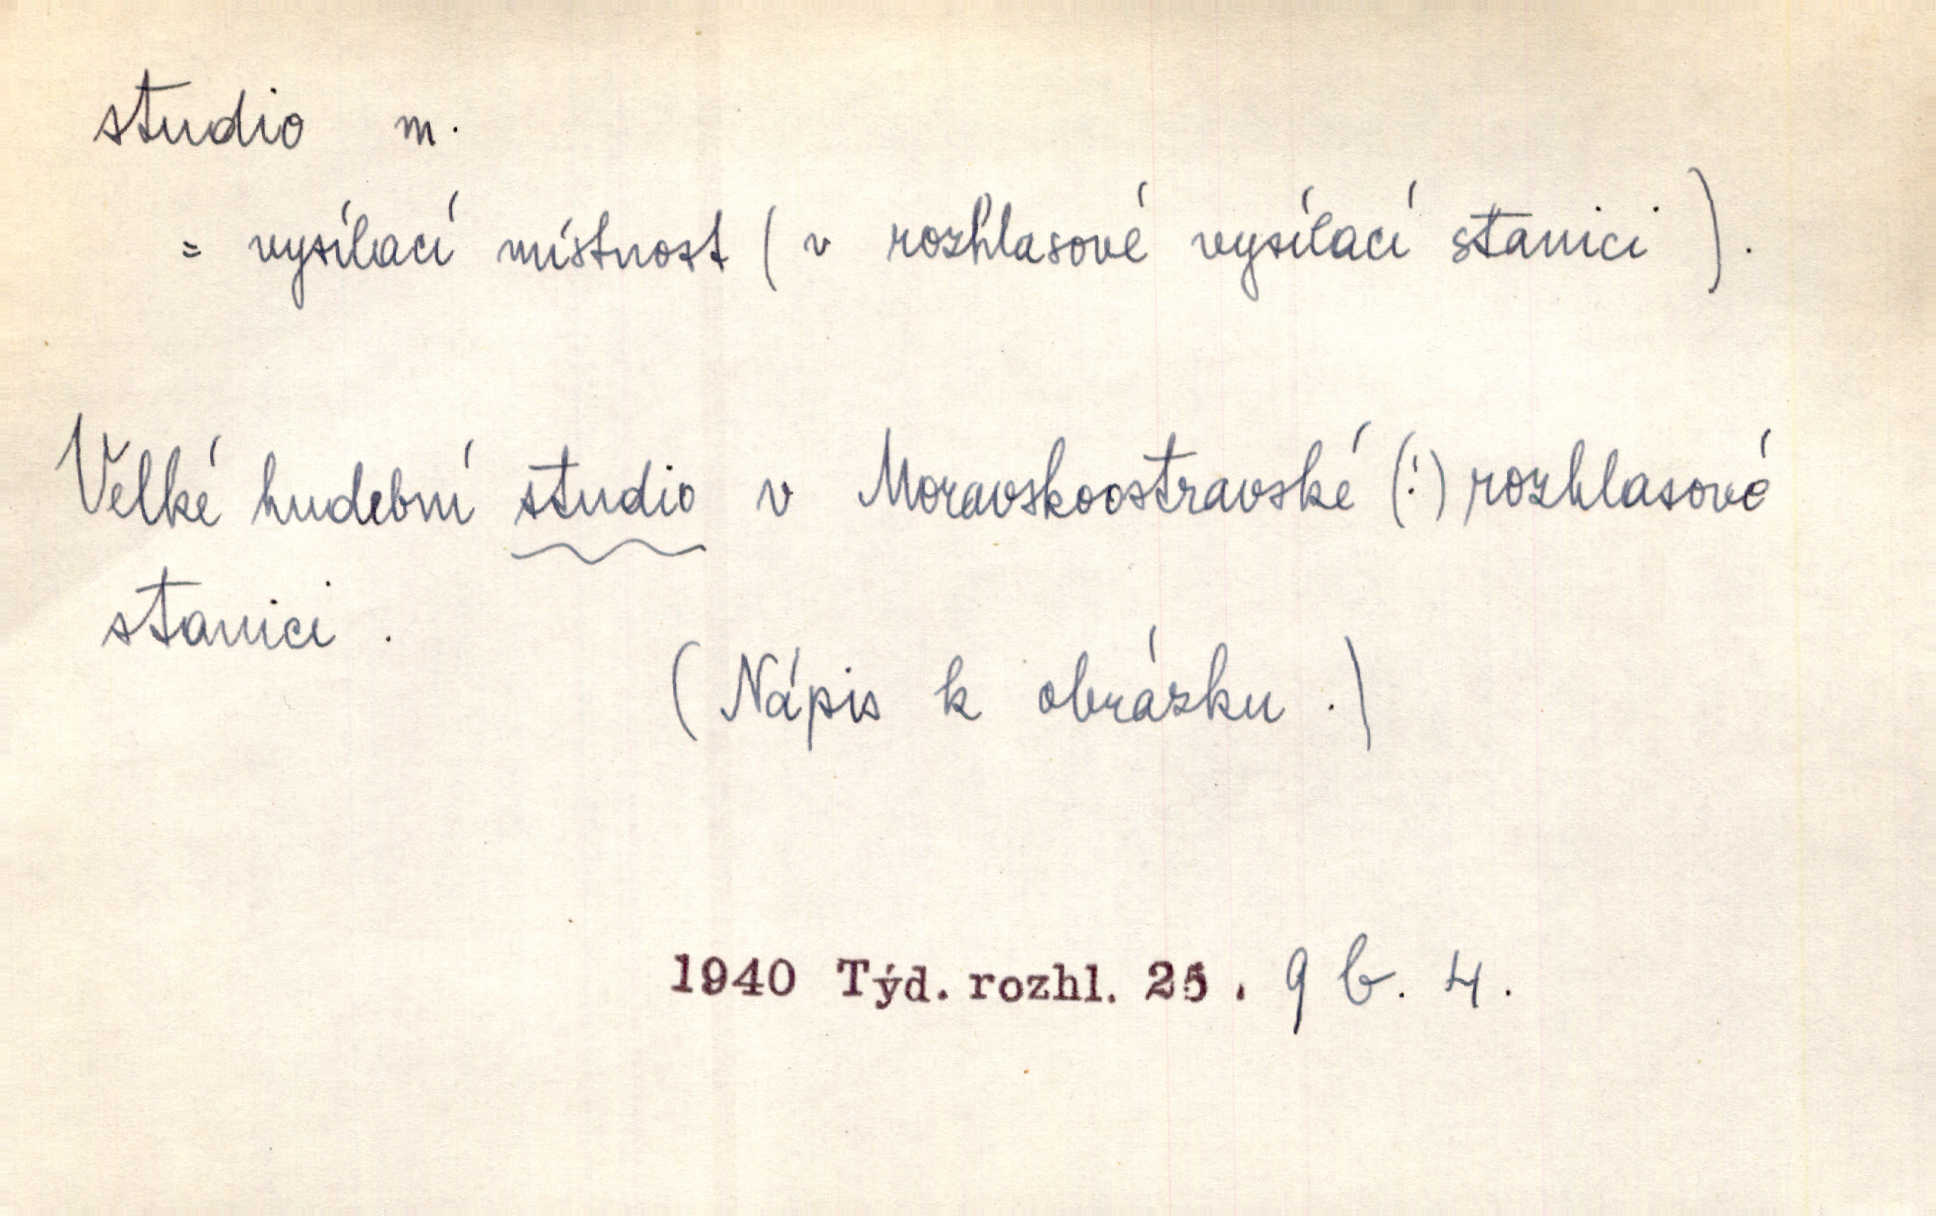 studio m.
= vysílací místnost (v rozhlasové vysílací stanici).
Velké hudební studio v Moravskoostravské (!) rozhlasové
stanici.
(Nápis k obrázku.)
1940 Týd. rozhl. 25. 9 b. 4.